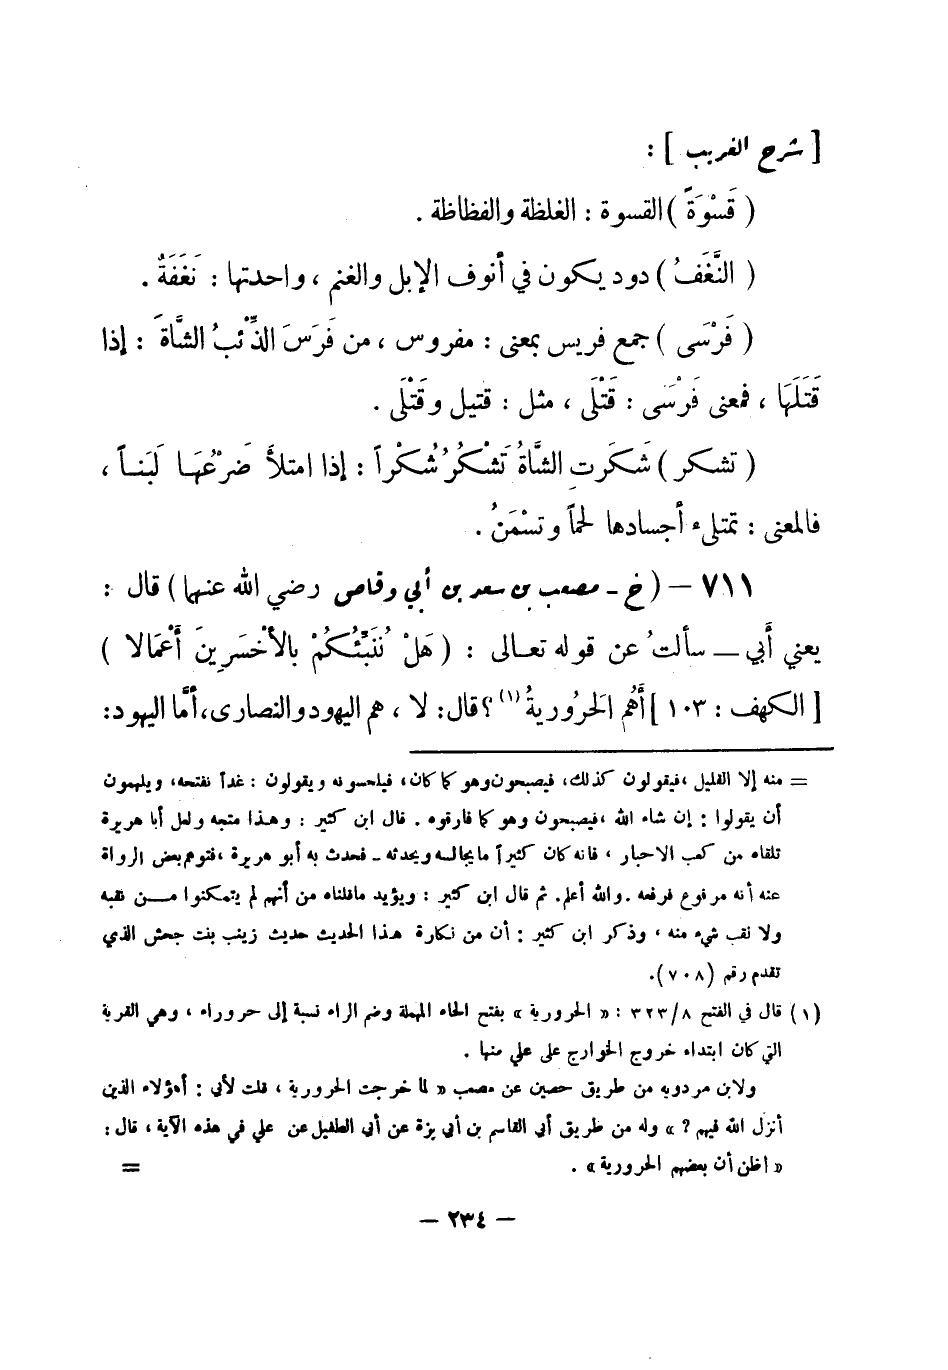 [ شرح الغريب ] :
( قَسْوَةً ) القسوة : الغلظة والفظاظة .
( النَّغَفُ ) دود يكون في أنوف الإبل والغنم ، واحدتها : نَغَفَةٌ .
( فَرْسَى ) جمع فريس بمعنى : مفروس ، من فَرَسَ الذِّئبُ الشَّاةَ : إذا
قَتَلَهَا ، فمعنى فَرْسَى : قَتْلَى ، مثل : قتيل وقَتْلَى .
( تشكر ) شَكَرَتِ الشَّاةُ تَشْكُرُ شُكْراً : إذا امتلأَ ضَرْعُهَا لَبَنـاً ،
فالمعنى : تمتلىء أجسادها لحماً وتسْمَنُ .
٧١١ - ( خ - مصعب بن سعد بن أبي وقاص رضي الله عنها ) قال :
يعني أَبي — سألتُ عن قوله تعـالى : ( هَلْ نُنَبِّئُكُمْ بِالأَخْسَرِينَ أَعْمَالا )
[ الكهف : ١٠٣ ] أَهُم الحَرُوريةُ (١) ؟ قال: لا ، هم اليهود والنصارى، أمَّا اليهود:
= منه إلا القليل ، فيقولون كذلك، فيصبحون وهو كما كان، فيلحسونه ويقولون : غداً نفتحه، ويلهمون
أن يقولوا : إن شاء الله ، فيصبحون وهو كما فارقوه . قال ابن كثير : وهـذا متجه ولعل أبا هريرة
تلقاه من كعب الاحبار ، فانه كان كثيراً ما يجالسه ويحدثه - فحدث به أبو هريرة ، فتوهم بعض الرواة
عنه أنه مرفوع فرفعه . والله أعلم. ثم قال ابن كثير : ويؤيد ماقلناه من أنهم لم يتمكنوا مـن نقبه
ولا نقب شيء منه ، وذكر ابن كثير : أن من نكارة هـذا الحديث حديث زينب بنت جحش الذي
تقدم رقم (٧٠٨).
(١) قال في الفتح ٣٢٣/٨ : « الحرورية » بفتح الحاء المهملة وضم الراء نسبة إلى حروراء ، وهي القرية
التي كان ابتداء خروج الخوارج على علي منها .
ولابن مردويه من طريق حصين عن مصعب « لما خرجت الحرورية ، قلت لأبي : أهؤلاء الذين
أنزل الله فيهم ؟ » وله من طريق أبي القاسم بن أبي بزة عن أبي الطفيل عن علي في هذه الآية ، قال :
« اظن أن بعضهم الحرورية » . =
- ٢٣٤ -